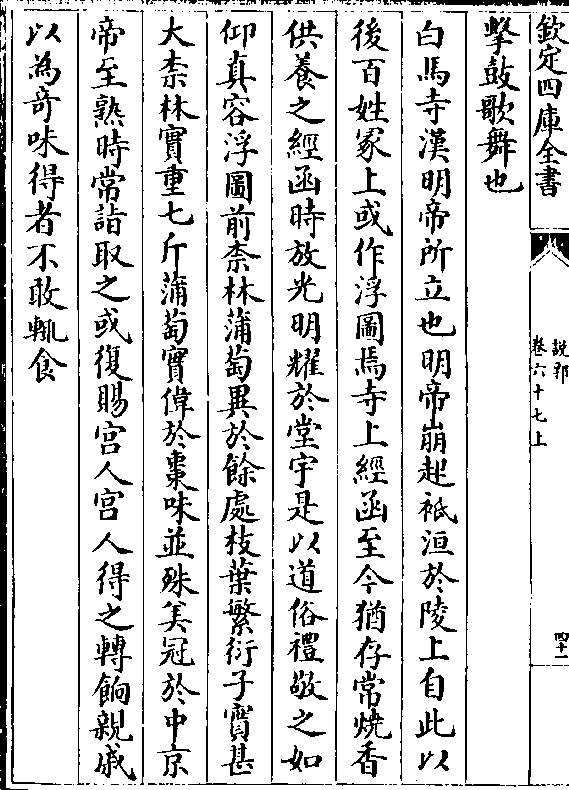 欽定四庫全書
說郛
卷六十七上
四十一
擊鼓歌舞也
白馬寺漢明帝所立也明帝崩起祗洹於陵上自此以
後百姓冢上或作浮圖焉寺上經函至今猶存常燒香
供養之經函時放光明耀於堂宇是以道俗禮敬之如
仰真容浮圖前柰林蒲萄異於餘處枝葉繁衍子實甚
大柰林實重七斤蒲萄實偉於棗味並殊美冠於中京
帝至熟時常詣取之或復賜宫人宫人得之轉餉親戚
以為奇味得者不敢輒食